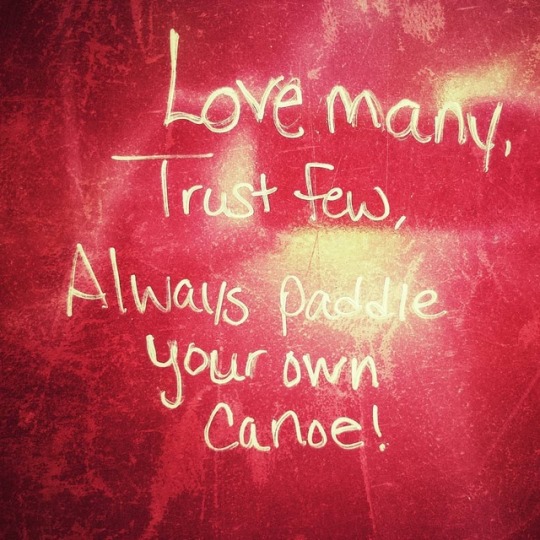 Love many,
Trust few,
Always paddle
your own
canoe!